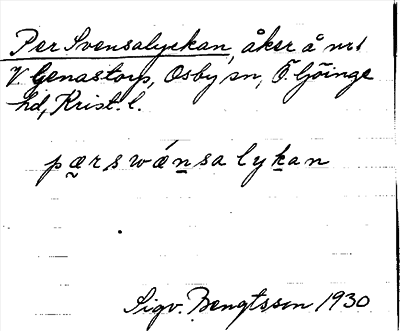 Per Svensalyckan, åker å nr 1
V. Genastorp, Osby sn, Ö. Göinge
hd, Krist. l.
pærswánsalykan
Sigv. Bengtsson 1930